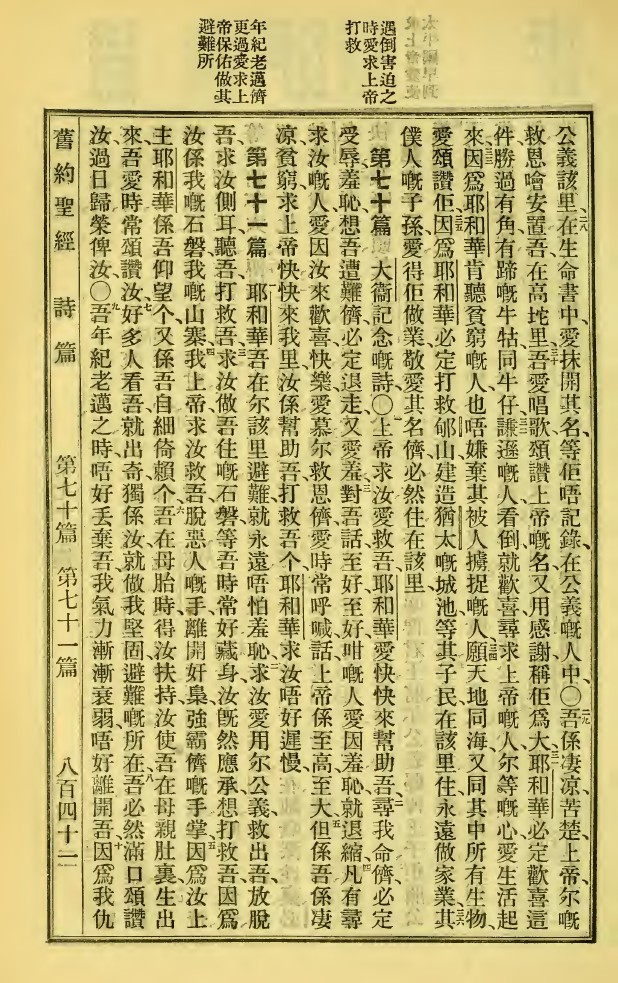 遇倒害迫之
時愛求上帝
打救
年紀老邁儕
更過愛求上
帝保佑做其
避難所
公義該里、二八在生命書中、愛抹開其名、等佢唔記錄在公義嘅人中、〇二九吾係凄凉苦楚、上帝尔嘅
救恩噲安置吾在高坨里、三十吾愛唱歌頌讚上帝嘅名、又用感謝稱佢爲大、三一耶和華必定歡喜這
件、勝過有角有蹄嘅牛牯同牛仔、三二謙遜嘅人看倒就歡喜、尋求上帝嘅人、尔等嘅心愛生活起
來、三三因爲耶和華肯聽貧窮嘅人、也唔嫌棄其被人擄捉嘅人、三四願天地同海、又同其中所有生物、
愛頌讚佢、三五因爲耶和華必定打救郇山、建造猶太嘅城池、等其子民在該里住、永遠做家業、三六其
僕人嘅子孫、愛得佢做業、敬愛其名儕、必然住在該里、
第七十篇 大衞記念嘅詩〇一上帝求汝愛救吾、耶和華愛快快來幫助吾、二尋我命儕、必定
受辱羞恥、想吾遭難儕、必定退走、又愛羞、三對吾話至好至好咁嘅人、愛因羞恥就退縮、四凡有尋
求汝嘅人、愛因汝來歡喜快樂、愛慕尔救恩儕、愛時常呼喊話、上帝係至高至大、五但係吾係凄
凉貧窮、求上帝快快來我里、汝係幫助吾、打救吾个、耶和華求汝唔好遲慢、
第七十一篇 一耶和華吾在尔該里避難、就永遠唔怕羞恥、二求汝愛用尔公義救出吾、放脫
吾、求汝側耳聽吾、打救吾、三求汝做吾住嘅石磐、等吾時常好藏身、汝旣然應承想打救吾、因爲
汝係我嘅石磐、我嘅山寨、四我上帝求汝救吾脫惡人嘅手、離開奸梟強霸儕嘅手掌、五因爲汝上
主耶和華、係吾仰望个、又係吾自細倚賴个、六吾在母胎時得汝扶持、汝使吾在母親肚裏生出
來、吾愛時常頌讚汝、七好多人看吾就出奇、獨係汝就做我堅固避難嘅所在、八吾必然滿口頌讚
汝、過日歸榮俾汝、〇九吾年紀老邁之時、唔好丢棄吾、我氣力漸漸衰弱、唔好離開吾、十因爲我仇
舊約聖經 詩篇 第七十篇 第七十一篇 八百四十二